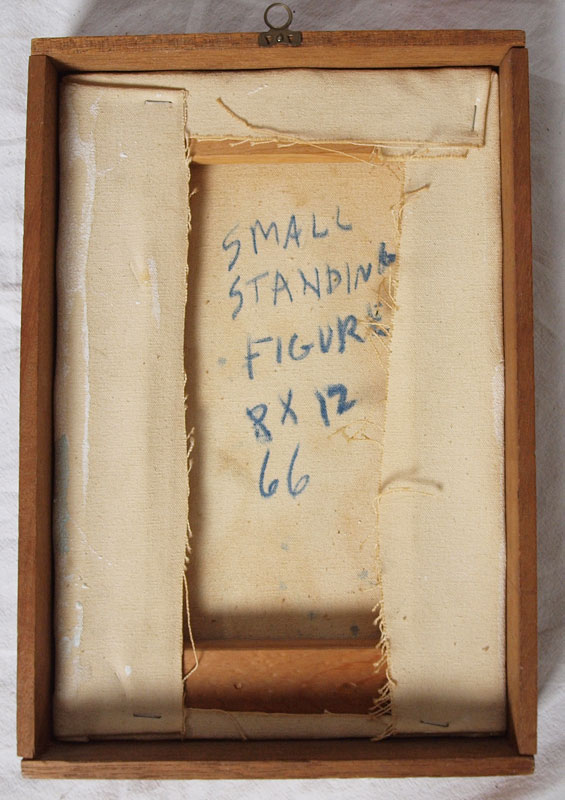 SMALL
STANDING
FIGURE
8 X 12
66